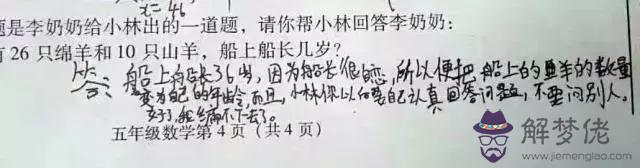 x=46
题是李奶奶给小林出的一道题，请你帮小林回答李奶奶：
有26只绵羊和10只山羊，船上船长几岁？
答：船上船长36岁，因为船长很恋，所以便把船上的羊的数量
变为自己的年龄，而且，小林你以后要自己认真回答问题，不要问别人。
我编不下去了。
五年级数学第4页（共4页）
解梦佬
www.jiemenglao.com